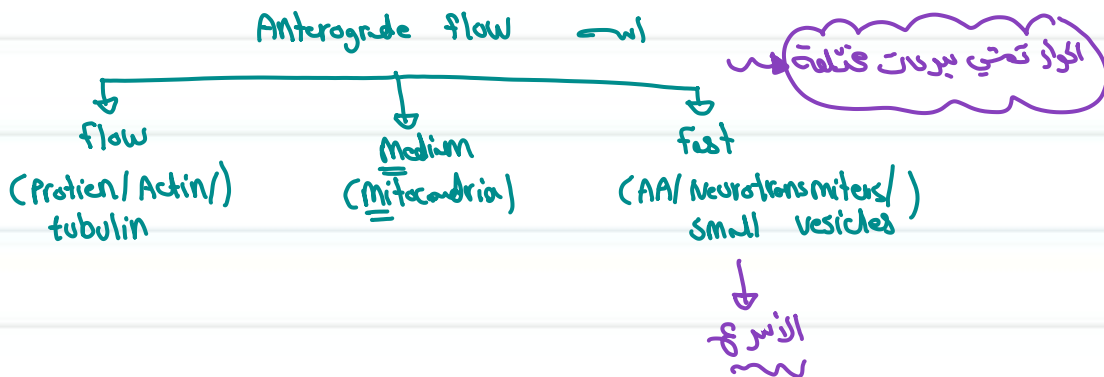 Anterograde flow
المواد تمشي بسرعات مختلفة
flow
Medium
fast
(Protien/Actin/)
tubulin
(Mitocondria)
(AA/Neurotransmiters/)
small vesicles
الأسرع